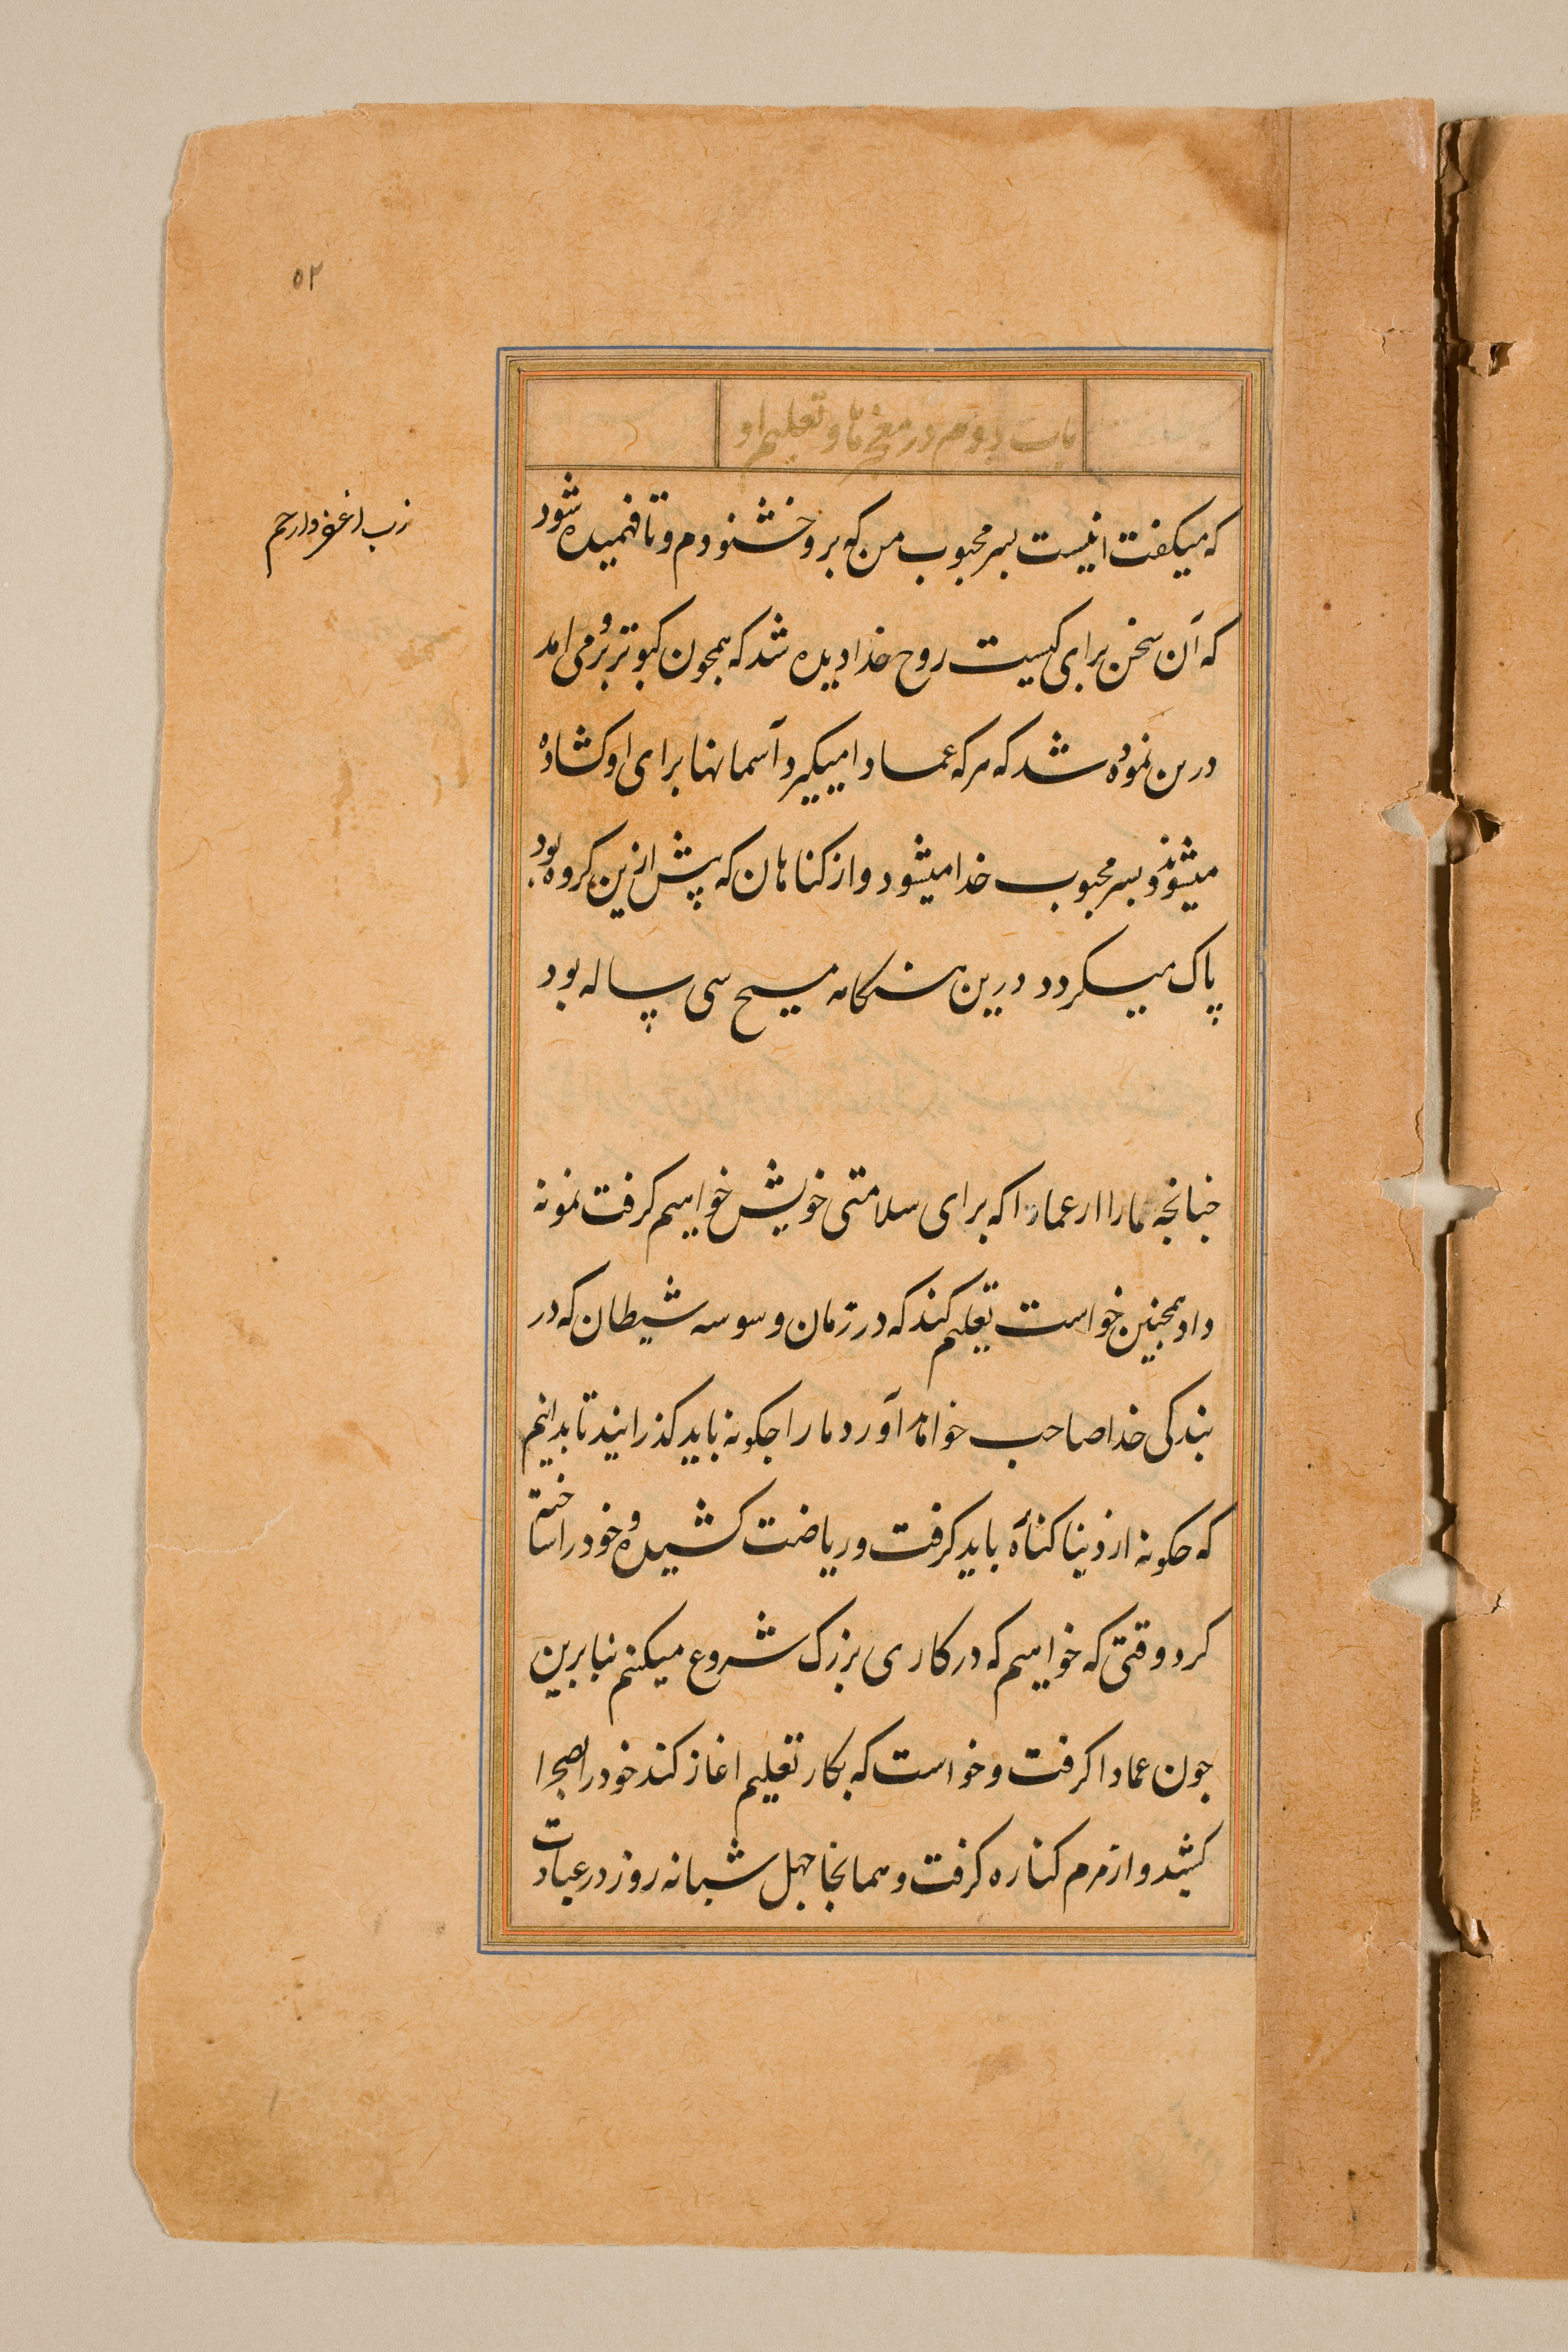 ۵۲
باب دوم در معجزها و تعلیم او
رب اغفر وارحم
که میکفت اینست پسر محبوب من که برو خشنودم و تا فهمیده شود
که آن سخن برای کیست روح خدا دیده شد که همجون کبوتر برو می امد
درین نموده شد که هرکه عماد را میکیرد آسمانها برای او کشاده
میشوند و پسر محبوب خدا میشود و از کناهان که پیش ازین کرده بود
پاک میکردد درین هنکام مسیح سی ساله بود
جنانجه مارا از عماد را که برای سلامتی خویش خواهیم کرفت نمونه
داد همجنین خواست تعلیم کند که در زمان وسوسه شیطان که در
بندکی خدا صاحب خواهد آورد مارا جکونه باید کذرانید تا بدانیم
که جکونه از دنیا کناره باید کرفت و ریاضت کشیده و خود را ساخته
کرد وقتی که خواهیم که در کاری بزرک شروع میکنیم بنابرین
جون عماد را کرفت و خواست که بکار تعلیم اغاز کند خود را بصحرا
کشید و از مردم کناره کرفت و همانجا جهل شبانه روز در عبادت